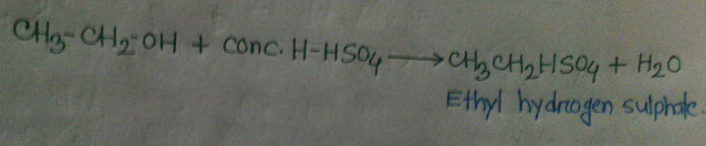 CH₃-CH₂-OH + conc. H-HSO₄ ⟶ CH₃CH₂HSO₄ + H₂O
Ethyl hydrogen sulphate.